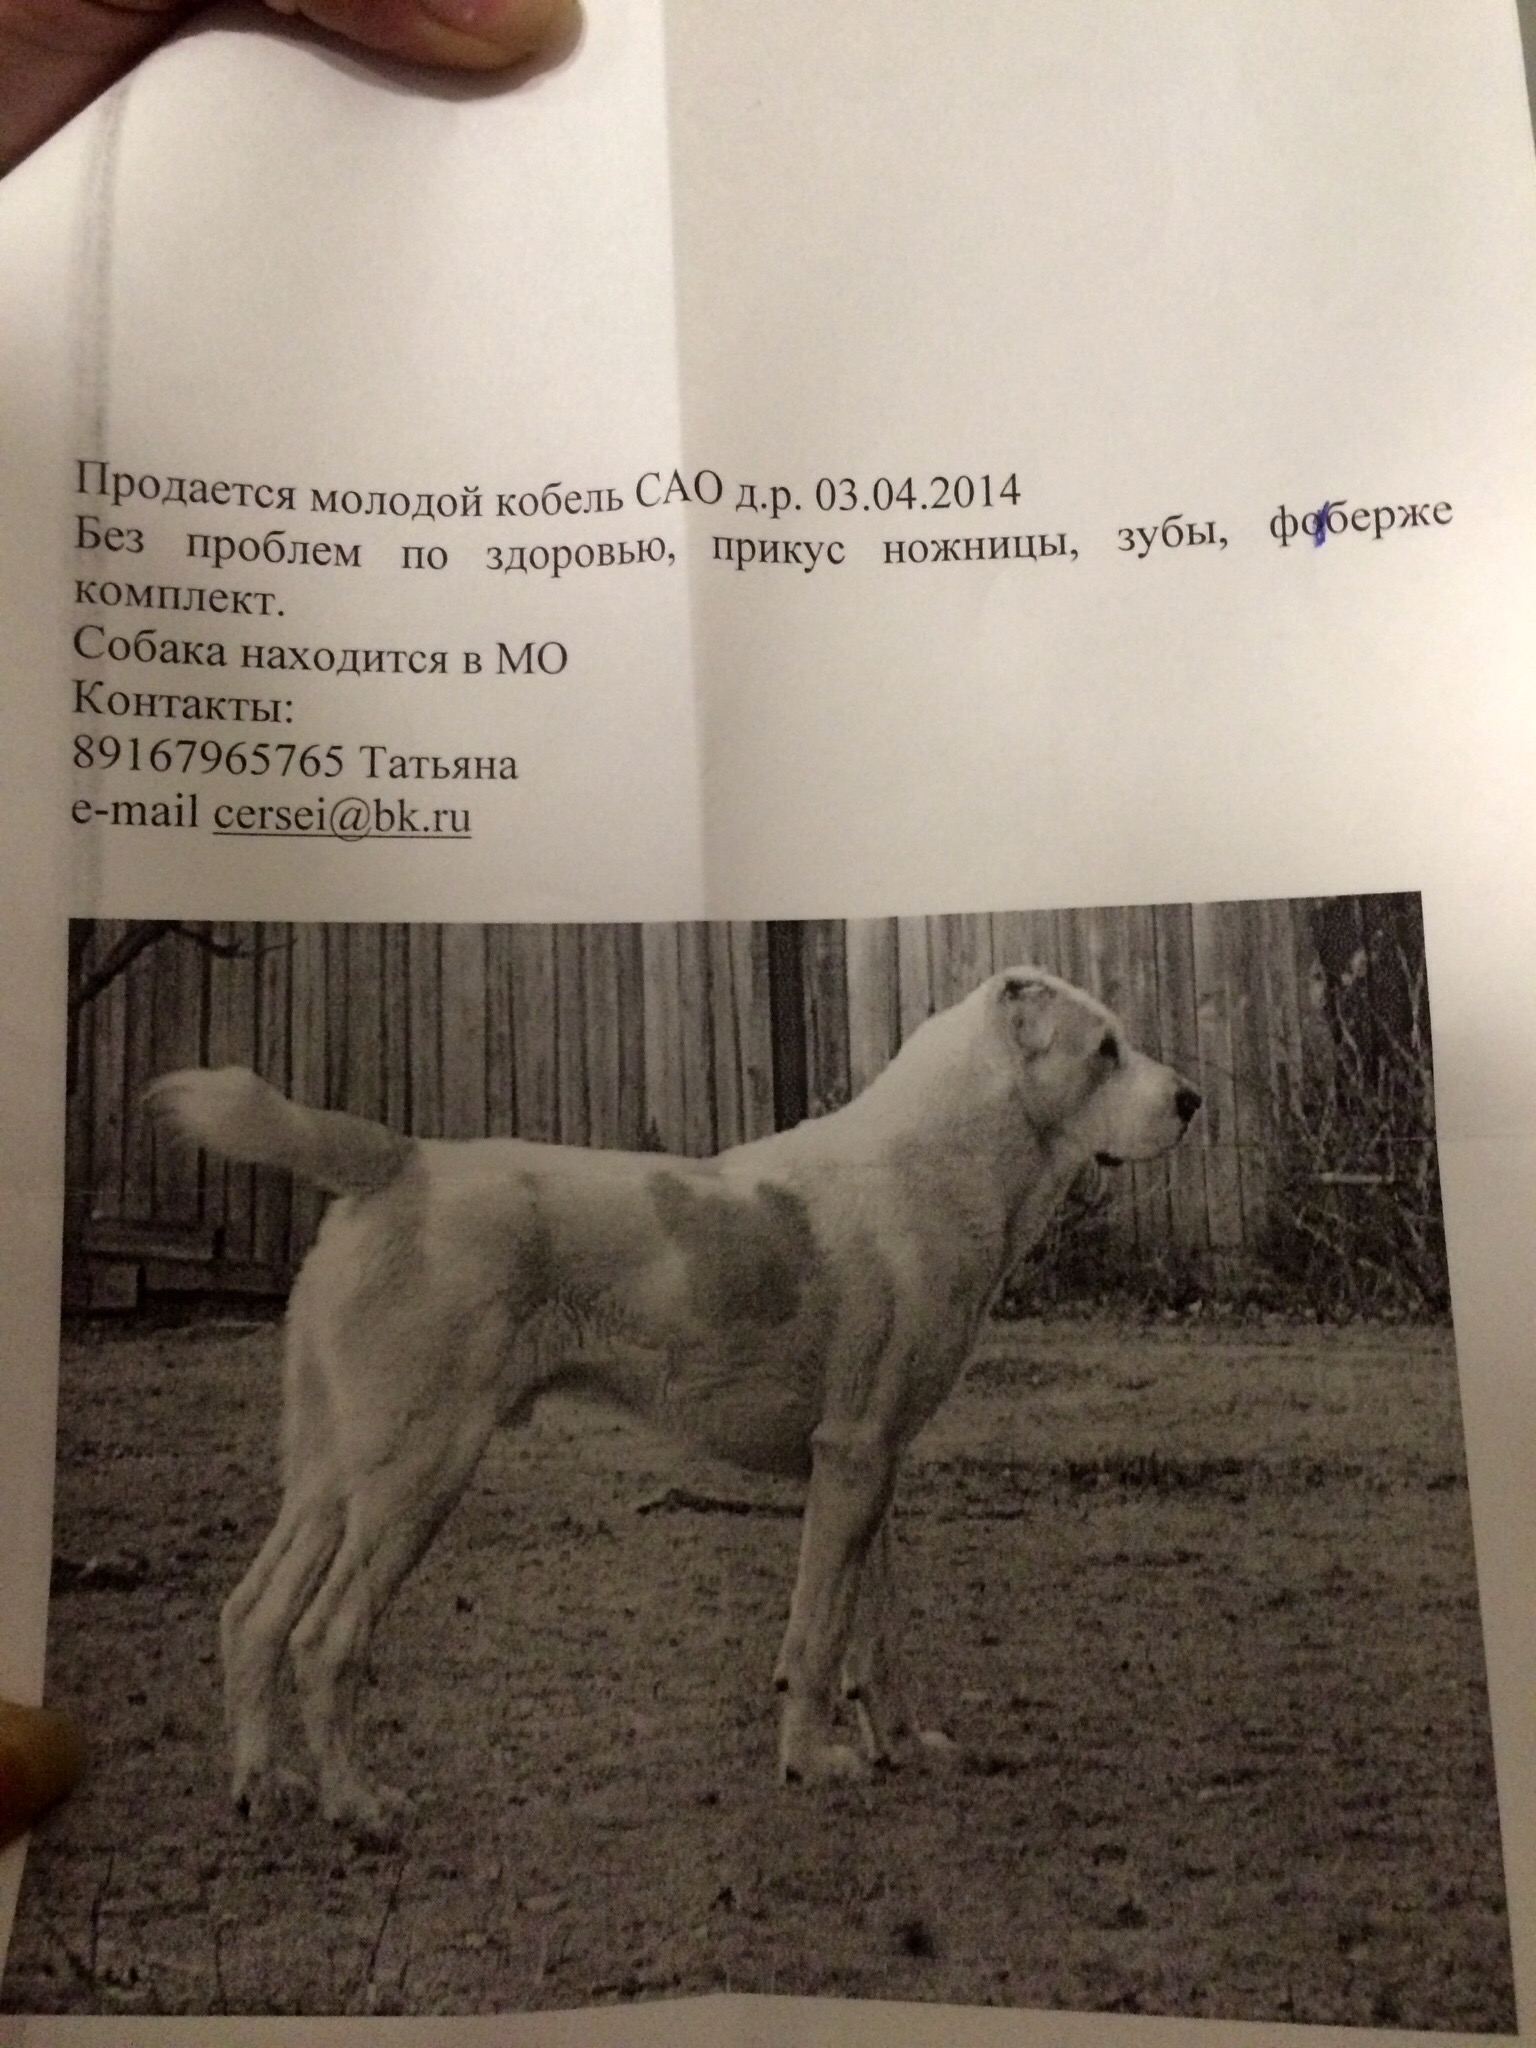 Продается молодой кобель САО д.р. 03.04.2014
Без проблем по здоровью, прикус ножницы, зубы, фоберже
комплект.
Собака находится в МО
Контакты:
89167965765 Татьяна
e-mail cersei@bk.ru